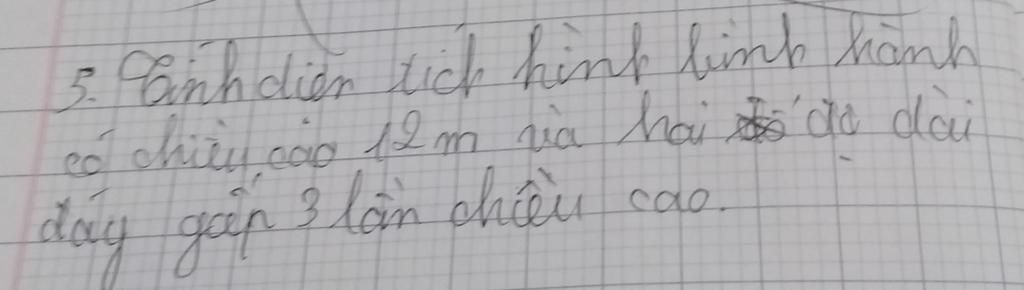 5. Tính diện tích hình bình hành
có chiều cao 12 m và hai độ dài
đáy gấp 3 lần chiều cao.